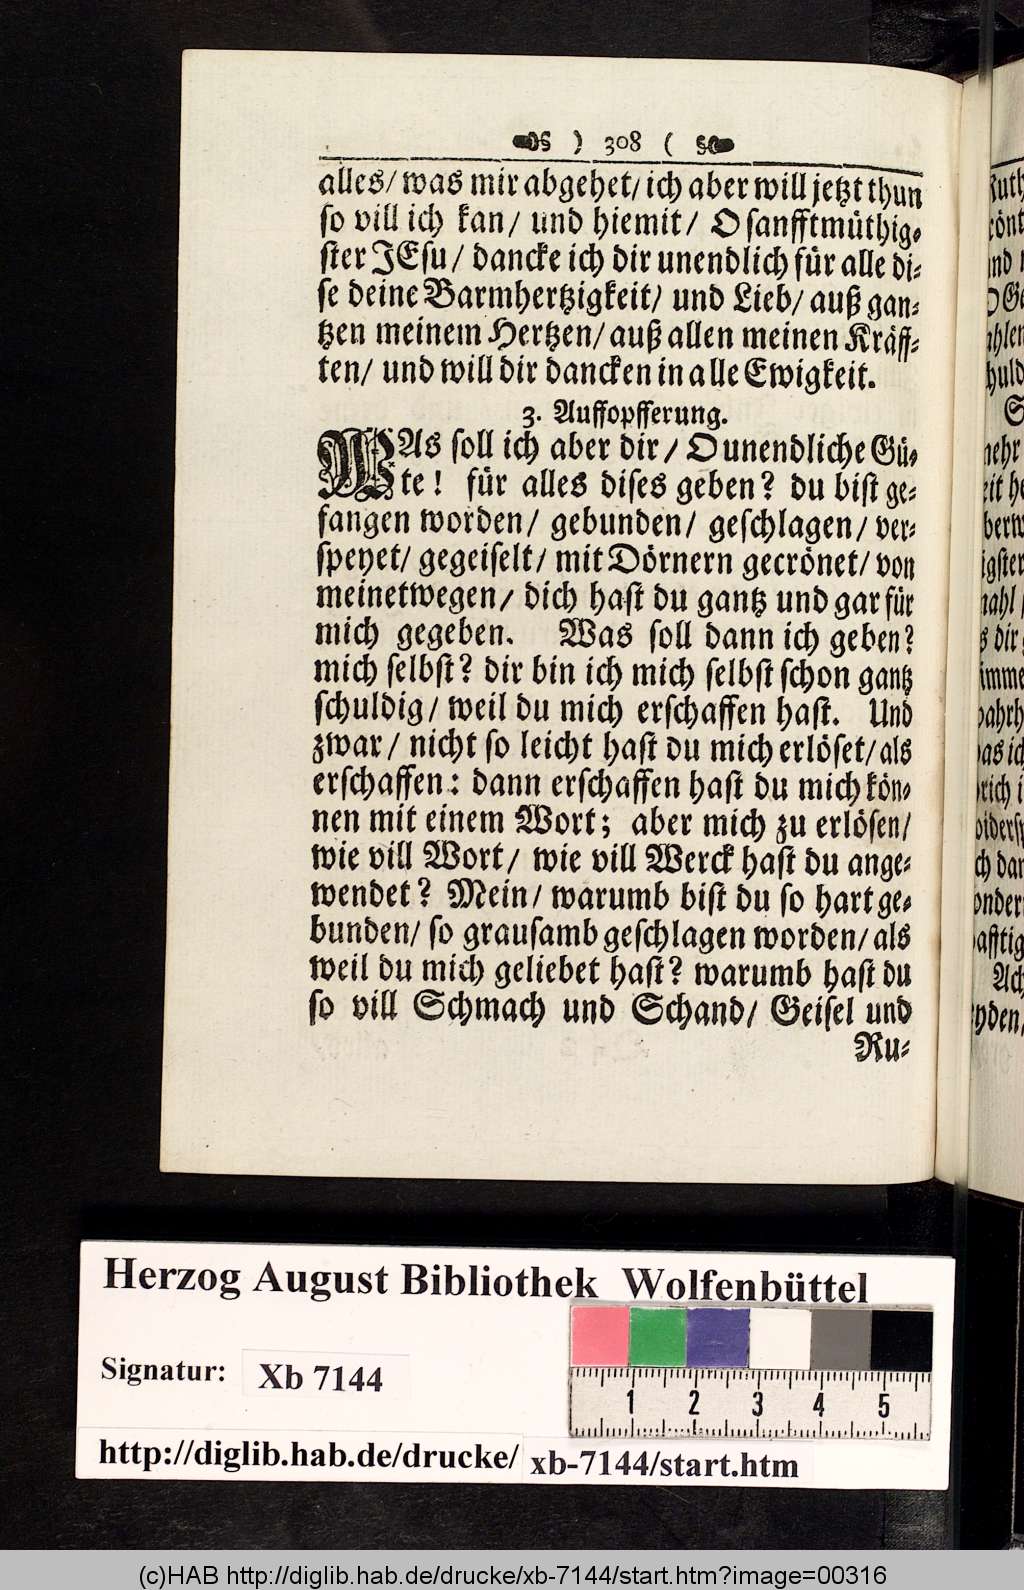 ) 308 (
alles/ was mir abgehet/ ich aber will jetzt thun
so vill ich kan/ und hiemit/ O sanfftmüthig-
ster JEsu/ dancke ich dir unendlich für alle di-
se deine Barmhertzigkeit/ und Lieb/ auß gan-
tzen meinem Hertzen/ auß allen meinen Kräff-
ten/ und will dir dancken in alle Ewigkeit.
3. Auffopfferung.
WAs soll ich aber dir/ O unendliche Gü-
te! für alles dises geben? du bist ge-
fangen worden/ gebunden/ geschlagen/ ver-
speyet/ gegeiselt/ mit Dörnern gecrönet/ von
meinetwegen/ dich hast du gantz und gar für
mich gegeben. Was soll dann ich geben?
mich selbst? dir bin ich mich selbst schon gantz
schuldig/ weil du mich erschaffen hast. Und
zwar/ nicht so leicht hast du mich erlöset/ als
erschaffen: dann erschaffen hast du mich kön-
nen mit einem Wort; aber mich zu erlösen/
wie vill Wort/ wie vill Werck hast du ange-
wendet? Mein/ warumb bist du so hart ge-
bunden/ so grausamb geschlagen worden/ als
weil du mich geliebet hast? warumb hast du
so vill Schmach und Schand/ Geisel und
Ru-
Herzog August Bibliothek Wolfenbüttel
Signatur: Xb 7144
1 2 3 4 5
http://diglib.hab.de/drucke/ xb-7144/start.htm
(c)HAB http://diglib.hab.de/drucke/xb-7144/start.htm?image=00316